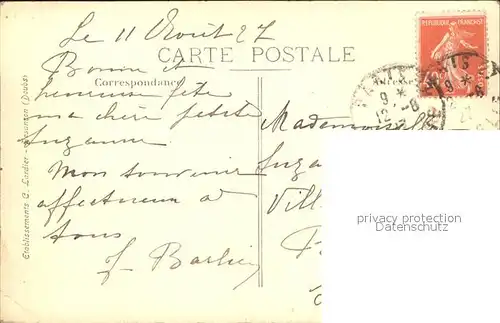 Le 11 Août 27
CARTE POSTALE
REPUBLIQUE FRANÇAISE
Correspondance
Bonne et
heureuse fête
ma chère petite
Suzanne
Mon souvenir
affectueux à
tous
Mademoiselle
Suza
Vill
privacy protection
Datenschutz
PARIS
9 *
12 - 8
Etablissements C. Lardier - Besançon (Doubs)